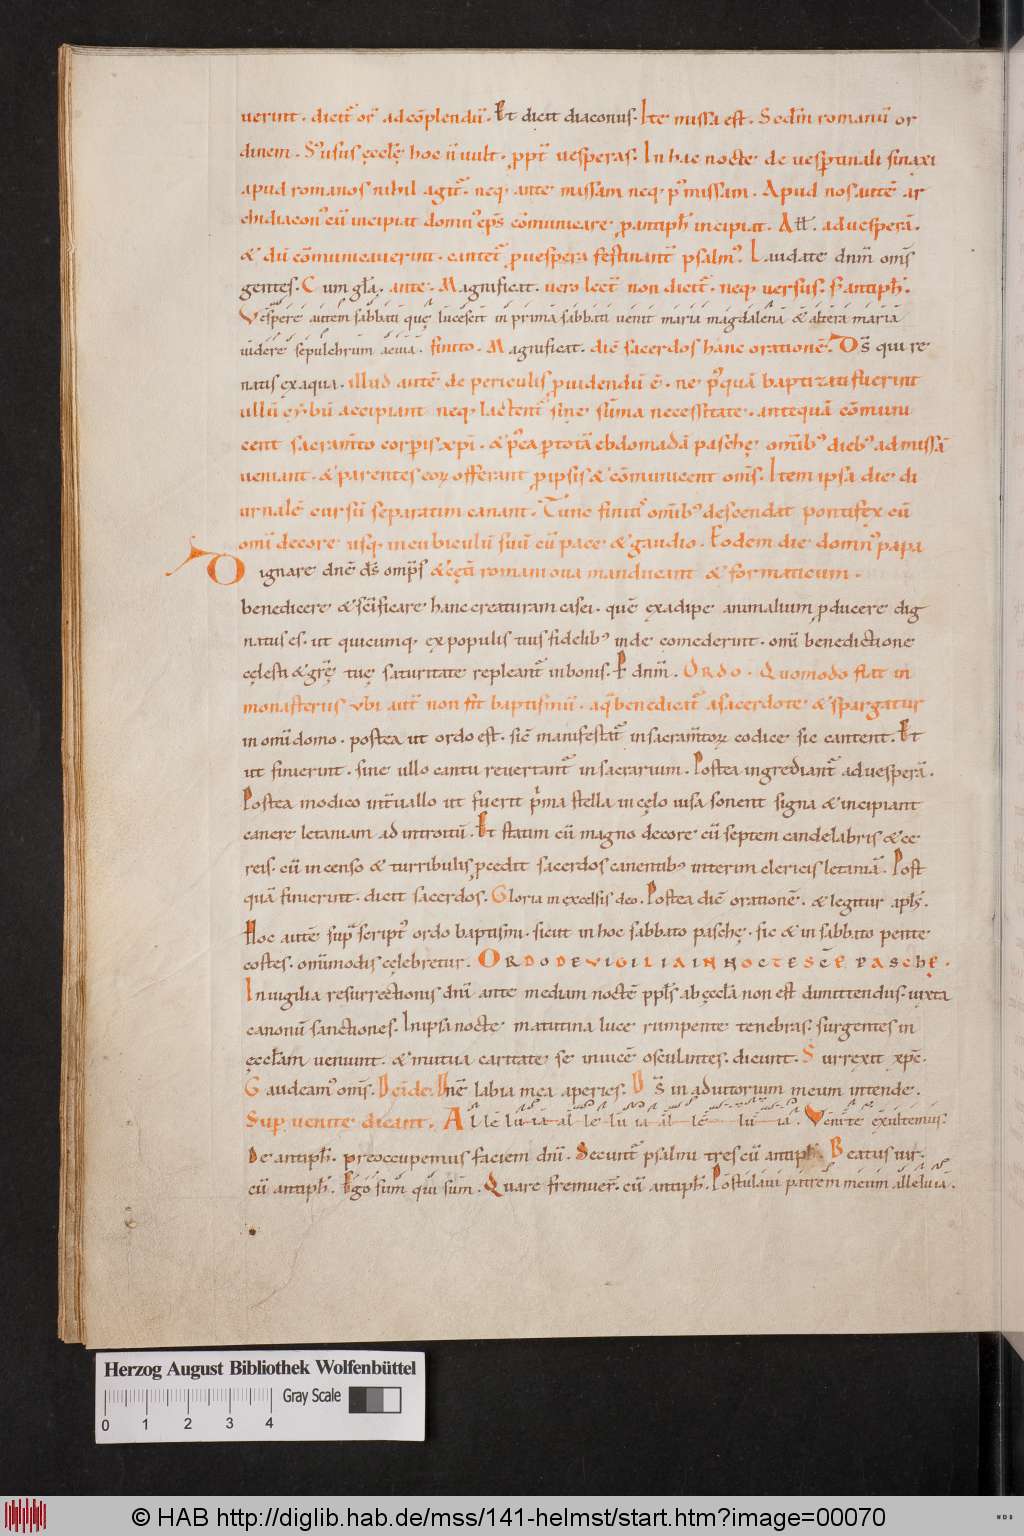 uerint. dicit̄ or̄ ad cōplendū. Et dicit diaconus. Ite missa est. Sed iīn romanū or
dinem. S; usus ęccłę̄ hoc n̄ uult. ꝓpt̄ uesperas. In hac nocte de uesꝑtinali sinaxi
apud romanos nihil agit̄. neq; ante missam neq; p᾽ missam. Apud nos autē ar
chidiacon᾽ cū incipiat domn᾽ ep̄s cōmunicare ꝑ antiph̄ incipiat. Att̄. ad uesperā.
& dū cōmunicauerint. cantet̄ ꝓ uespera festinant̄ psalm᾽. Laudate dnm̄ om̄s
gentes. Cum głā. ante. Magnificat. uero lect̄ non dicit̄. neq; uersus. S; antiph̄.
Vespere autem sabbati quę lucescit in prima sabbati uenit maria magdalenā & altera maria
uidere sepulchrum aeuia. finito. Magnificat. dic̄ sacerdos hanc orationē. Ds̄ qui re
natis ex aqua. illud autē de periculis ꝓuidendū ē. ne p᾽quā baptizati fuerint
ullū cybū accipiant neq; lactent᾽ sine sūma necessitate. antequā cōmuni
cent sacram̄to corꝑis xp̄i. & p᾽ea ꝑ totā ebdomadā paschę om̄ib᾽ dieb᾽ ad missā
ueniant. & parentes eoꝝ offerant ꝓ ipsis & cōmunicent om̄s. Item ipsa die di
urnalē cursū separatim canant. Tunc finit᾽ om̄ib᾽ descendat pontifex cū
omī decore usq; in cubiculū suū cū pace & gaudio. Eodem die domn᾽ papa
Dignare dnē ds̄ omp̄s & cęti romani oua manducant & formaticum.
benedicere & sc̄ificare hanc creaturam casei. quē ex adipe animalium ꝓducere dig
natus es. ut quicumq; ex populis tuis fidelib᾽ inde comederint. omī benedictione
cęlesti & gr̄ę tuę saturitate repleant̄ in bonis. P dnm̄. Ordo. Quomodo fiat in
monasteriis ubi aut̄ non fit baptismū. aq̄ benedicat̄ a sacerdote & spargatur
in omī domo. postea ut ordo est. sic̄ manifestat̄ in sacram̄toꝝ codice sic cantent. Et
ut finierint. sine ullo cantu reuertant̄ in sacrarium. Postea ingrediant̄ ad uesperā.
Postea modico int̄uallo ut fuerit p̄ma stella in cęlo uisa sonent signa & incipiant
canere letaniam ad introitū. Et statim cū magno decore cū septem candelabris & ce
reis. cū incenso & turribulis ꝓcedit sacerdos canentib᾽ interim clericis letaniā. Post
quā finierint. dicit sacerdos. Gloria in excelsis deo. Postea dic̄ orationē. & legitur apłs.
Hoc autē sup̄ script᾽ ordo baptismi. sicut in hoc sabbato paschę. sic & in sabbato pente
costes. omīmodis cęlebretur. ORDO DE VIGILIA IN NOCTE SCĒ PASCHE.
In uigilia resurrectionis dnī ante mediam noctē pp̄ls ab ęccłā non est dimittendus. iuxta
canonū sanctiones. In ipsa nocte matutina luce rumpente tenebras. surgentes in
ęccłam ueniunt. & mutua caritate se inuicē osculantes. dicunt. Surrexit xp̄c.
Gaudeam᾽ om̄s. Deīde. Dnē labia mea aperies. Ds̄ in adiutorium meum intende.
Super uenite dicant. Al le lu ia al le lu ia al le lu ia. Venite exultemus.
De antiph̄. preoccupemus faciem dnī. Secunt̄ psalmi tres cū antiph̄. Beatus uir.
cū antiph̄. Ego sum qui sum. Quare fremuer̄. cū antiph̄. Postulaui patrem meum alleluia.
Herzog August Bibliothek Wolfenbüttel
Gray Scale
0 1 2 3 4
© HAB http://diglib.hab.de/mss/141-helmst/start.htm?image=00070